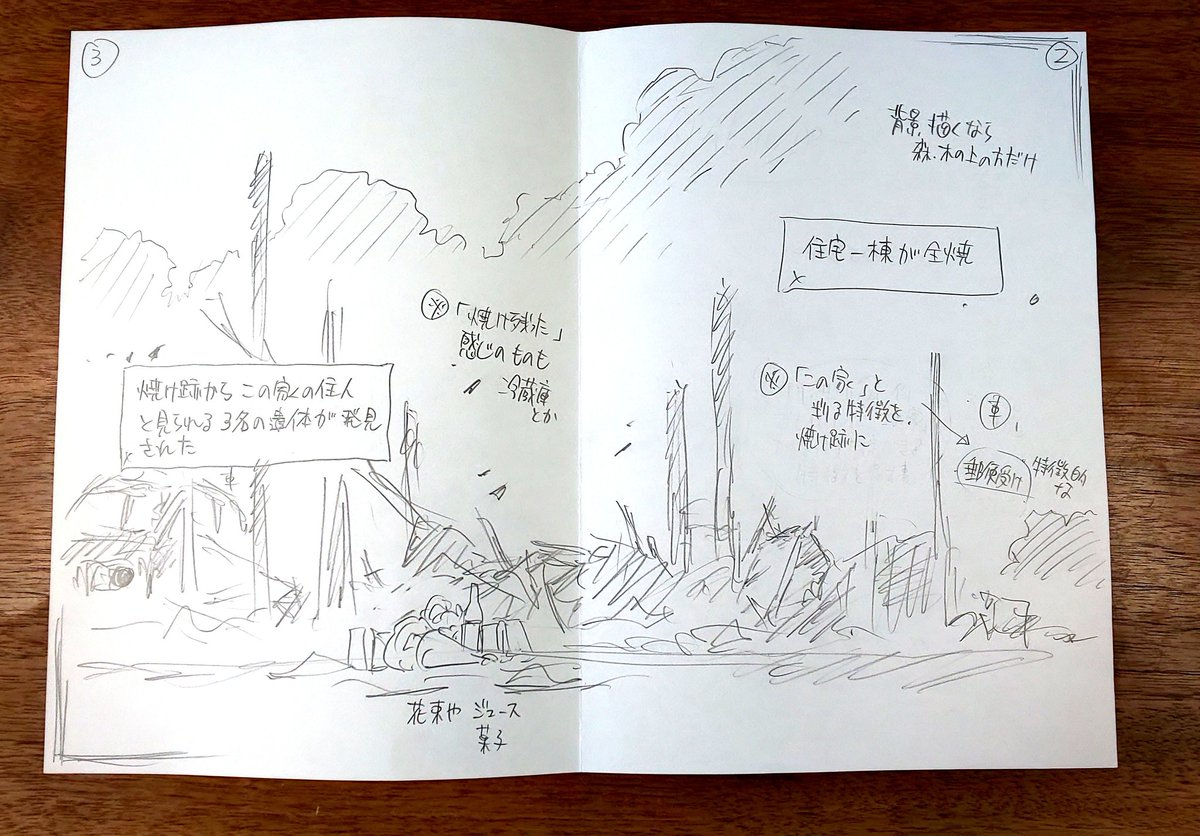 ②
背景、描くなら
森・木の上の方だけ
住宅一棟が全焼
※「この家」と
判る特徴を、
焼け跡に
車、
郵便受け
特徴的
な
③
※「焼け残った」
感じのものも
冷蔵庫
とか
焼け跡から この家の住人
と見られる 3名の遺体が発見
された
車
花束や ジュース
菓子